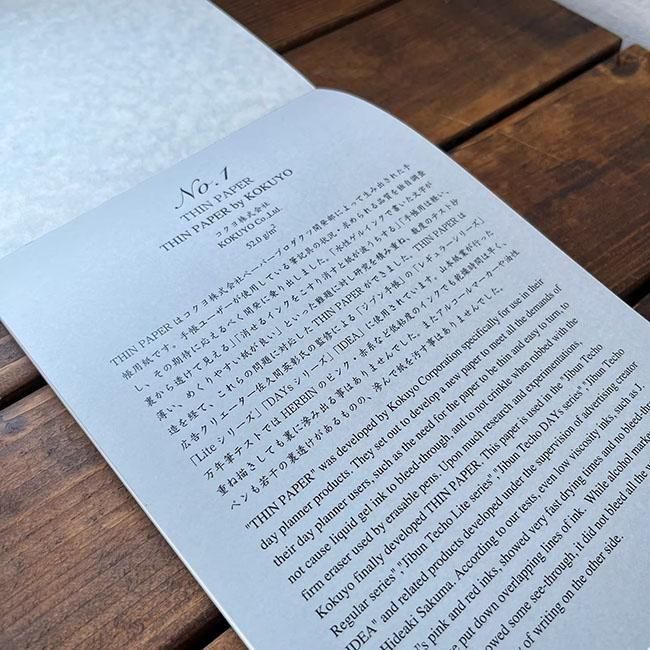 No. 1
THIN PAPER
THIN PAPER by KOKUYO
コクヨ株式会社
KOKUYO Co.,Ltd.
52.0 g/m²
THIN PAPER はコクヨ株式会社ペーパープロダクツ開発部によって生み出された手
帳用紙です。手帳ユーザーが使用している筆記具の状況・求められる品質を独自調査
し、その期待に応えるべく開発に乗り出しました。「水性ゲルインクで書いた文字が
裏から透けて見える」「消せるインクをこすり消すと紙が波うちする」「手帳用は軽い、
薄い、めくりやすい紙が良い」といった難題に対し研究を積み重ね、数度のテスト抄
造を経て、これらの問題に対応した THIN PAPER ができました。THIN PAPER は
広告クリエーター佐久間英彰氏の監修による「ジブン手帳」の「レギュラーシリーズ」
「Lite シリーズ」「DAYs シリーズ」「IDEA」に使用されています。山本紙業が行った
万年筆テストでは HERBIN のピンク・赤系など低粘度のインクでも乾燥時間は早く、
重ね描きしても裏に滲み出る事はありませんでした。またアルコールマーカーや油性
ペンも若干の裏透けがあるものの、滲んで紙を汚す事はありませんでした。
"THIN PAPER" was developed by Kokuyo Corporation specifically for use in their
day planner products. They set out to develop a new paper to meet all the demands of
their day planner users, such as the need for the paper to be thin and easy to turn, to
not cause liquid gel ink to bleed-through, and to not crinkle when rubbed with the
firm eraser used by erasable pens. Upon much research and experimentations,
Kokuyo finally developed THIN PAPER. This paper is used in the "Jibun Techo
Regular series", "Jibun Techo Lite series" "Jibun Techo DAYs series" "Jibun Techo
IDEA" and related products developed under the supervision of advertising creator
Hideaki Sakuma. According to our tests, even low viscosity inks, such as J.
's pink and red inks, showed very fast drying lines and no bleed-th
e put down overlapping lines of ink. While alcohol make
owed some see-through, it did not bleed all the w
of writing on the other side.